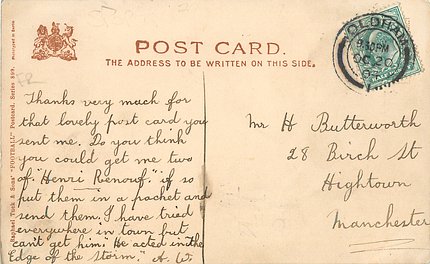 POST CARD.
THE ADDRESS TO BE WRITTEN ON THIS SIDE.
Raphael Tuck & Sons' "FOOTBALL" Postcard. Series 899.
OLDHAM
OC 20
Thanks very much for
that lovely post card you
sent me. Do you think
you could get me two
of "Henri Renouf." if so
put them in a packet and
send them. I have tried
everywhere in town but
can't get him. He acted in "The
Edge of the Storm."
Mr H Butterworth
28 Birch St
Hightown
Manchester